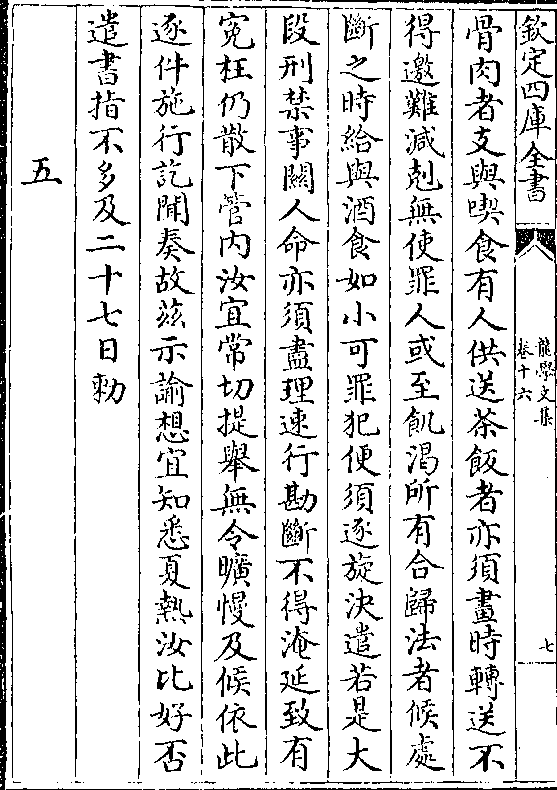 欽定四庫全書
龍學文集
卷十六
七
骨肉者支與喫食有人供送茶飯者亦須畫時轉送不
得邀難減剋無使罪人或至飢渴所有合歸法者候處
斷之時給與酒食如小可罪犯便須逐旋決遣若是大
段刑禁事關人命亦須盡理速行勘斷不得淹延致有
寃枉仍散下管内汝宜常切提舉無令曠慢及候依此
逐件施行訖聞奏故兹示諭想宜知悉夏熱汝比好否
遣書指不多及二十七日勅
五